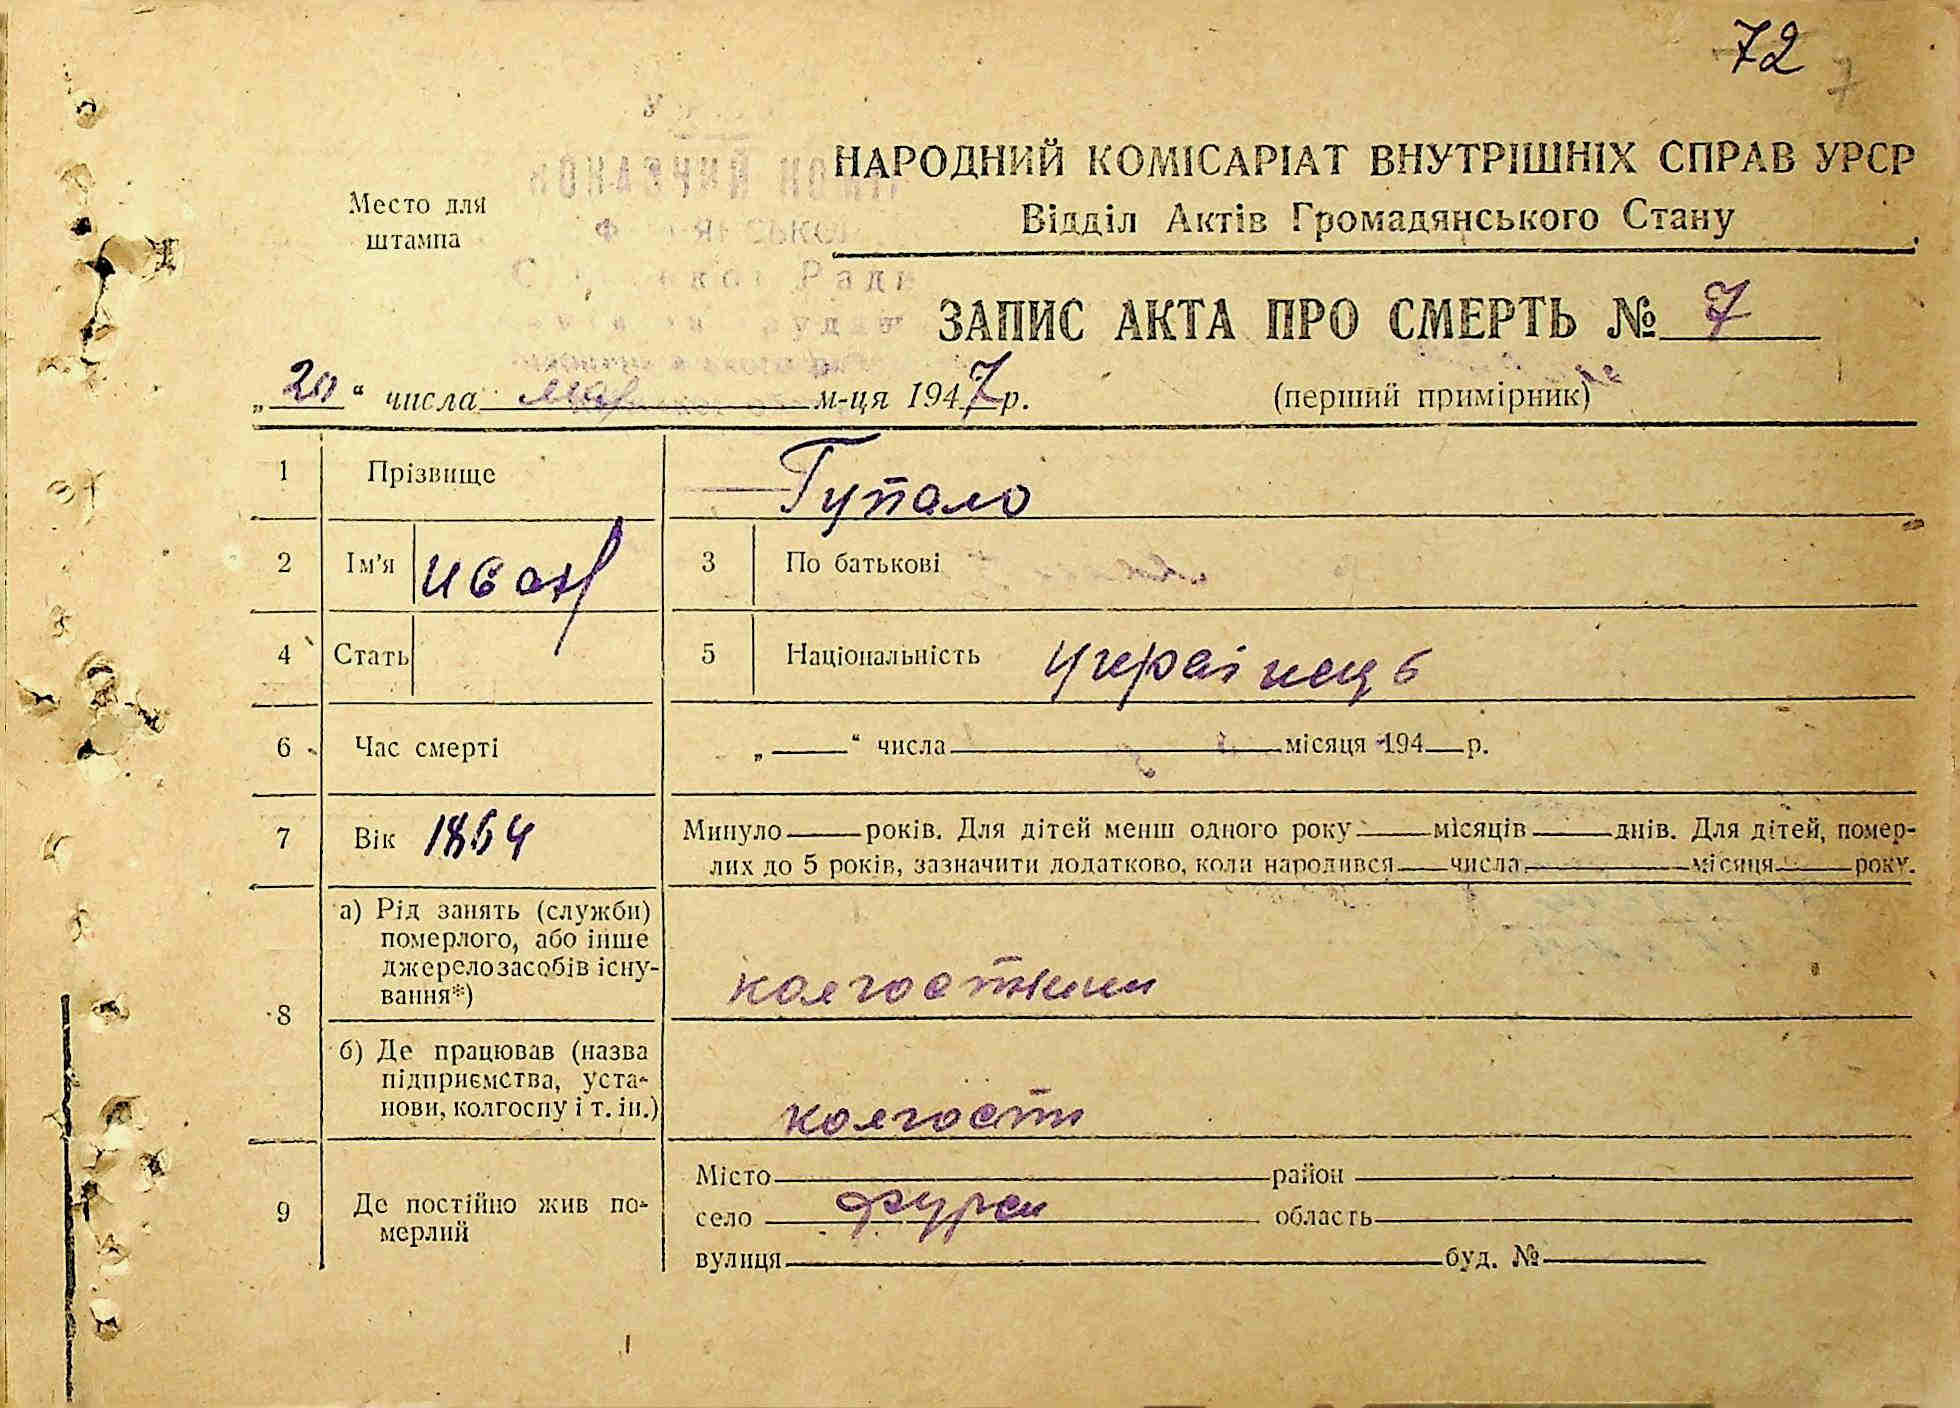 72
7
Место для
штампа
НАРОДНИЙ КОМІСАРІАТ ВНУТРІШНІХ СПРАВ УРСР
Відділ Актів Громадянського Стану
Ради
ЗАПИС АКТА ПРО СМЕРТЬ № 7
„20“ числа мая м-ця 1947 р.
(перший примірник)
1 Прізвище Гупало
2 Ім'я Иван 3 По батькові
4 Стать 5 Національність українець
6 Час смерті „ “ числа місяця 194 р.
7 Вік 1864 Минуло років. Для дітей менш одного року місяців днів. Для дітей, помер-
лих до 5 років, зазначити додатково, коли народився числа місяця року.
8 а) Рід занять (служби)
померлого, або інше
джерело засобів існу-
вання*)
колгоспник
б) Де працював (назва
підприємства, уста-
нови, колгоспу і т. ін.)
колгоспи
9 Де постійно жив по-
мерлий
Місто район
село Фурси область
вулиця буд. №